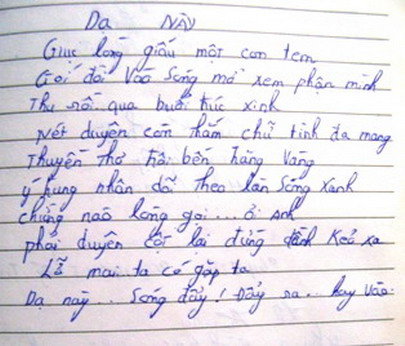 Dạ NÀY
Giục lòng giấu một con tem
Gói đôi vào sóng mở xem phận mình
Thu rồi qua buổi trúc xinh
Nét duyên còn thắm chữ tình đa mang
Thuyền thơ hồi bến hàng vàng
ý hung nhân dõi theo làn sóng xanh
chừng nào lòng gọi... ơi anh
phải duyên cột lại đừng đành kẻo xa
Lỡ mai ta có gặp ta
Dạ này.. Sóng đẩy! Đẩy ra.. hay vào.